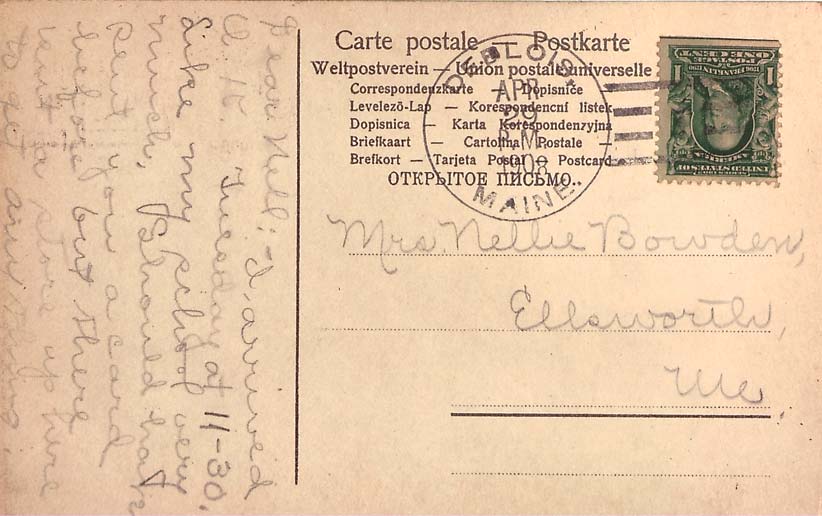 Carte postale — Postkarte
Weltpostverein — Union postale universelle
Correspondenzkarte — Dopisnice
Levelező-Lap — Korespondencní listek
Dopisnica — Karta Korespondenzyjna
Briefkaart — Cartolina Postale —
Brefkort — Tarjeta Postal — Postcard
ОТКРЫТОЕ ПИСЬМО.
DEBLOIS.
APR
29
P.M.
1908
MAINE
POSTAGE
ONE CENT
1 FRANKLIN 1
UNITED STATES OF
AMERICA
Mrs. Nellie Bowden,
Ellsworth,
Me.
Dear Nell:- I arrived
O.K. Tuesday at 11-30.
Like my school very
much, Should have
sent you a card
before but there
isn't a store up here
to get anything.